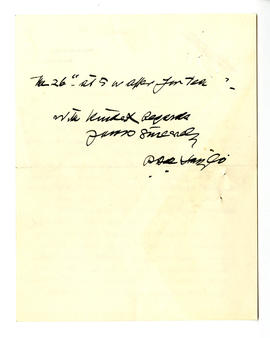 the 26th at 5 or after for tea?
With kindest regards
yours sincerely